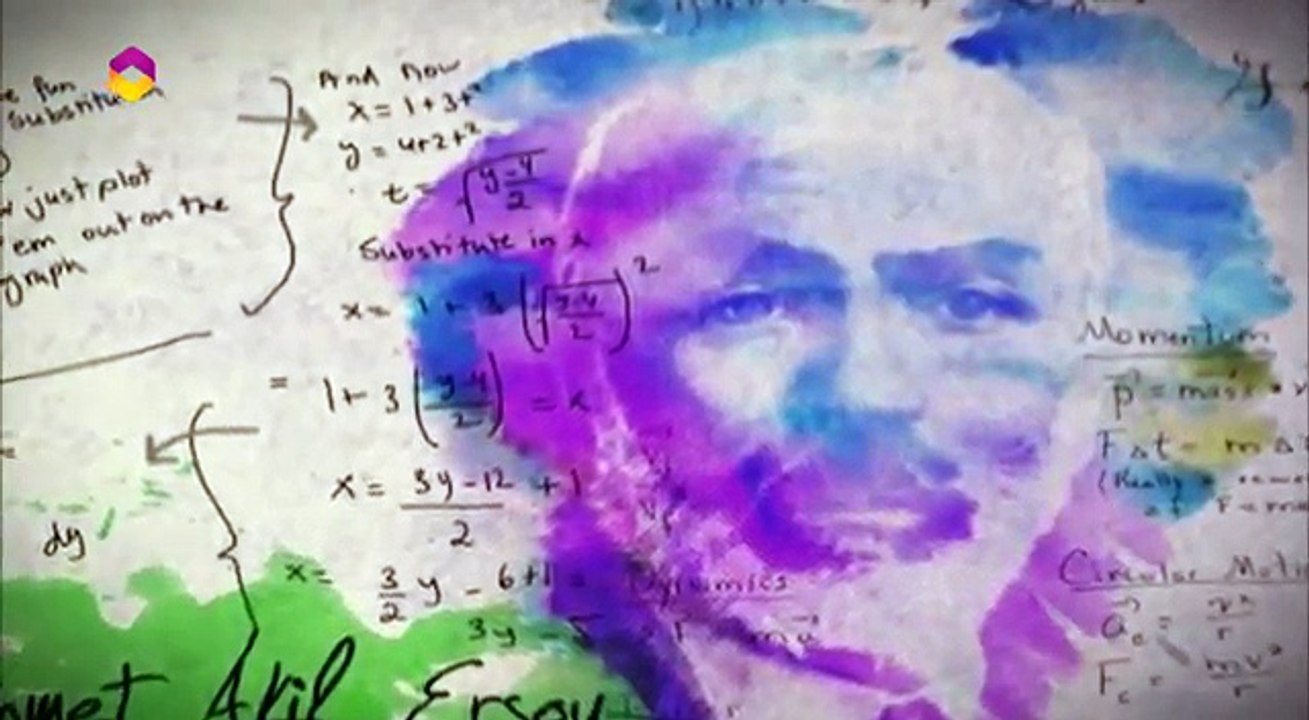 e fun
Substitu
just plot
em out on the
graph
dy
And Now
x = 1 + 3t²
y = 4+2+²
t = √((y-4)/2)
Substitute in x
x = 1 + 3 (√((y-4)/2))²
= 1 + 3 ((y-4)/2) = x
x = (3y-12)/2 + 1
x = 3/2 y - 6+1 =
3y - 5
Dynamics
Momentum
p⃗ = mass
F Δt = m Δ
(Really
F = ma
Circular Moti
a⃗c = v²/r
Fc = mv²/r
met Akif Ersoy